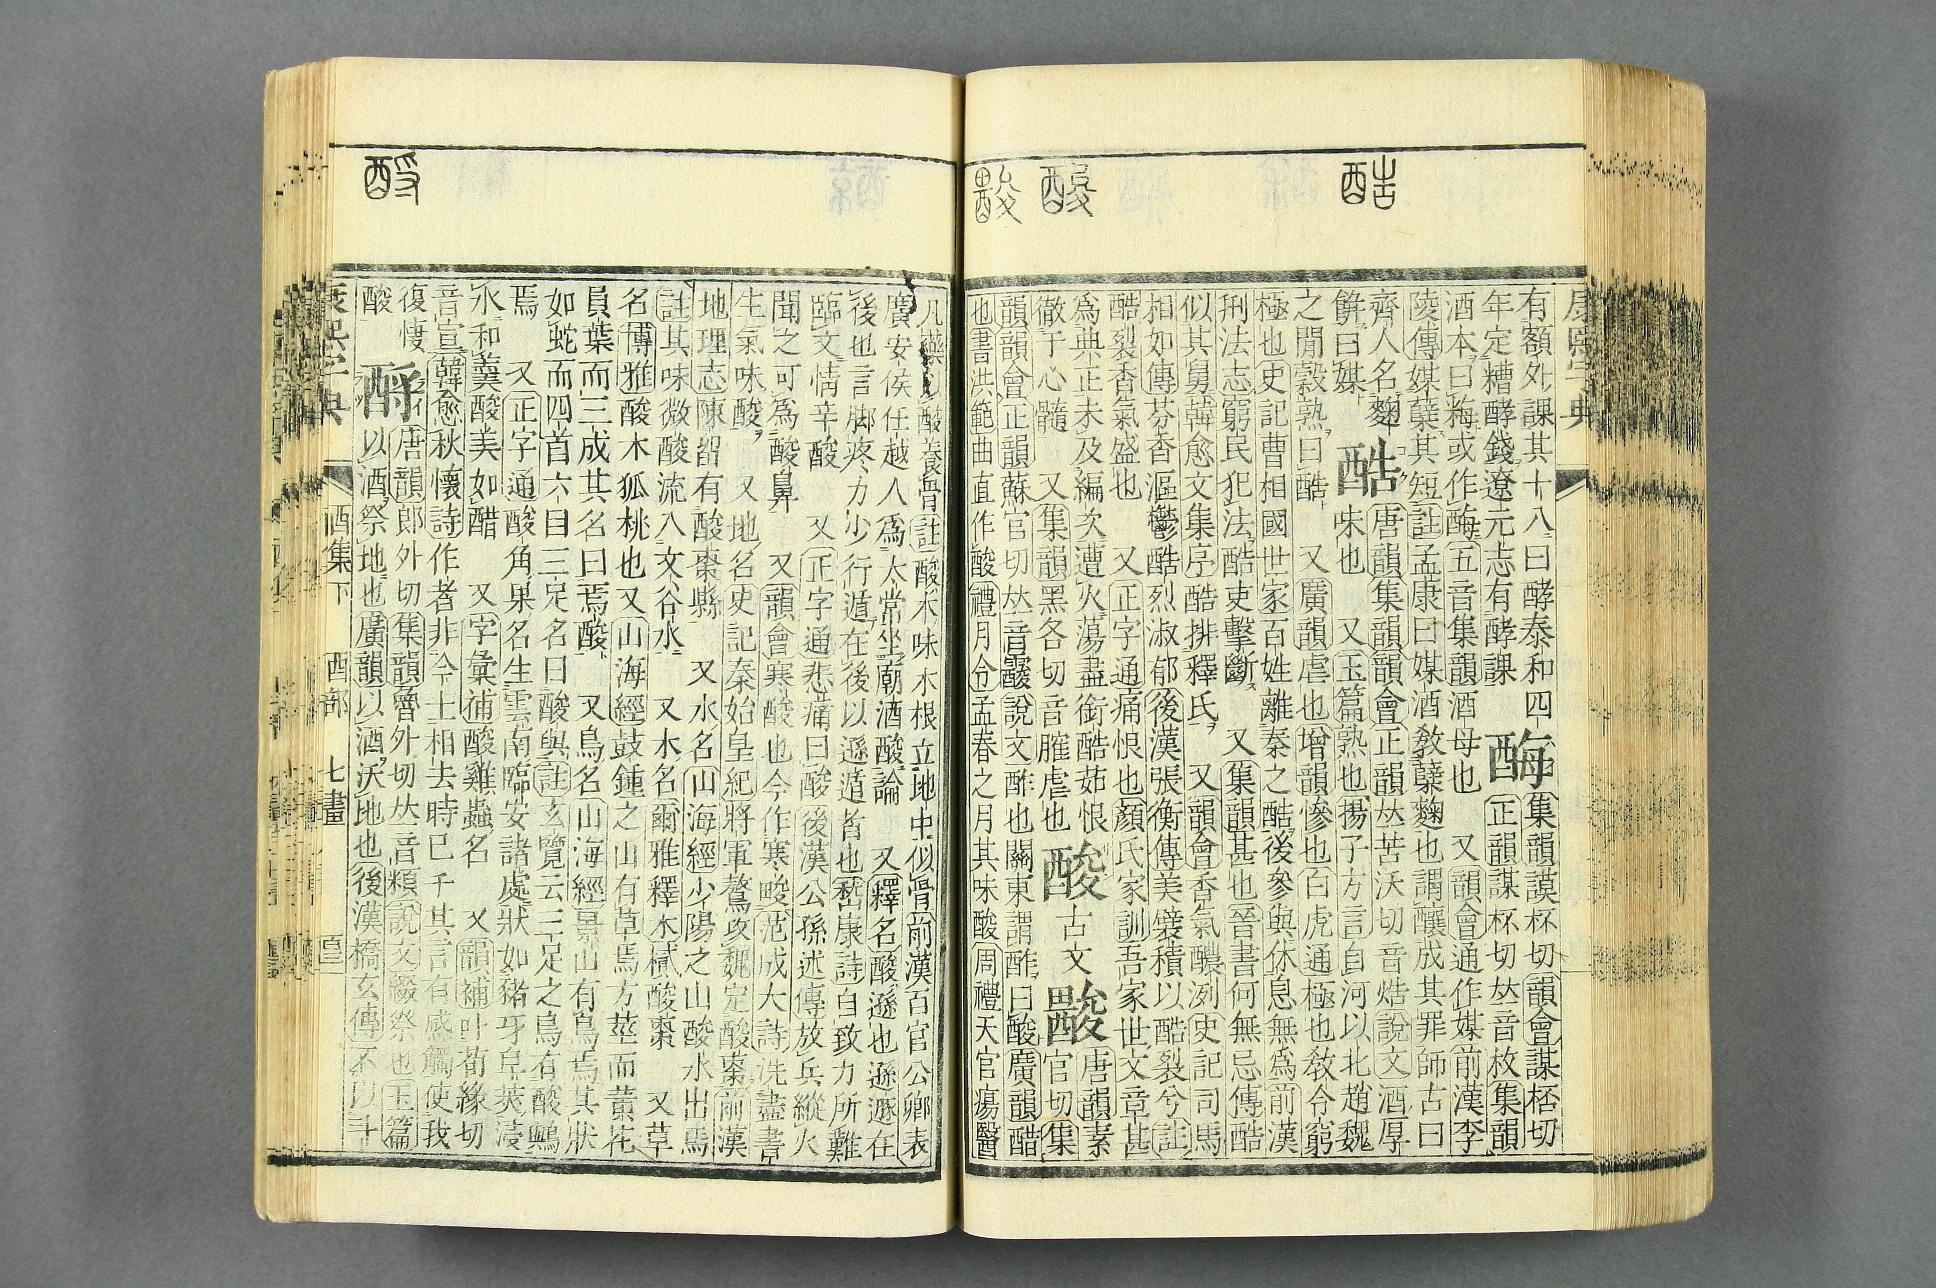 酷
酸
康熙字典
有額外課其十八曰酵泰和四
年定糟酵錢遼元志有酵課
酶
集韻謨杯切韻會謀桮切
正韻謀杯切𠀤音枚集韻
酒本曰䊈或作酶五音集韻酒母也 又韻會通作媒前漢李
陵傳媒櫱其短註孟康曰媒酒敎櫱麴也謂釀成其罪師古曰
齊人名麴
餠曰媒
酷
唐韻集韻韻會正韻𠀤苦沃切音焅說文酒厚
味也 又玉篇熟也揚子方言自河以北趙魏
之閒穀熟曰酷 又廣韻虐也增韻慘也白虎通極也敎令窮
極也史記曹相國世家百姓離秦之酷後參與休息無爲前漢
刑法志窮民犯法酷吏擊斷 又集韻甚也晉書何無忌傳酷
似其舅韓愈文集序酷排釋氏 又韻會香氣釅洌史記司馬
相如傳芬香漚鬱酷烈淑郁後漢張衡傳美襞積以酷裂兮註
酷裂香氣盛也 又正字通痛恨也顏氏家訓吾家世文章甚
爲典正未及編次遭火蕩盡銜酷茹恨
徹于心髓 又集韻黑各切音臛虐也
酸
古文
唐韻素
官切集
韻韻會正韻蘇官切𠀤音霰說文酢也關東謂酢曰酸廣韻醋
也書洪範曲直作酸禮月令孟春之月其味酸周禮天官瘍醫
酹
凡藥以酸養骨註酸木味木根立地中似骨前漢百官公卿表
廣安侯任越人爲太常坐廟酒酸論 又釋名酸遜也遜遁在
後也言脚疼力少行遁在後以遜遁者也嵇康詩自致力所難
臨文情辛酸 又正字通悲痛曰酸後漢公孫述傳放兵縱火
聞之可爲酸鼻 又韻會寒酸也今作寒畯范成大詩洗盡書
生氣味酸 又地名史記秦始皇紀將軍驁攻魏定酸棗前漢
地理志陳留有酸棗縣 又水名山海經少陽之山酸水出焉
註其味微酸流入文谷水 又木名爾雅釋木樲酸棗 又草
名博雅酸木狐桃也又山海經鼓鍾之山有草焉方莖而黃花
員葉而三成其名曰焉酸 又鳥名山海經景山有鳥焉其狀
如蛇而四首六目三足名曰酸與註玄覽云三足之鳥有酸鷃
焉 又正字通酸角果名生雲南臨安諸處狀如猪牙皁莢浸
水和羹酸美如醋 又字彙補酸雞蟲名 又韻補叶荀緣切
音宣韓愈秋懷詩作者非今士相去時已千其言有感觸使我
復悽
酸
酹
唐韻郎外切集韻魯外切𠀤音纇說文餟祭也玉篇
以酒祭地也廣韻以酒沃地也後漢橋玄傳不以斗
康熙字典 酉集下 酉部 七畫